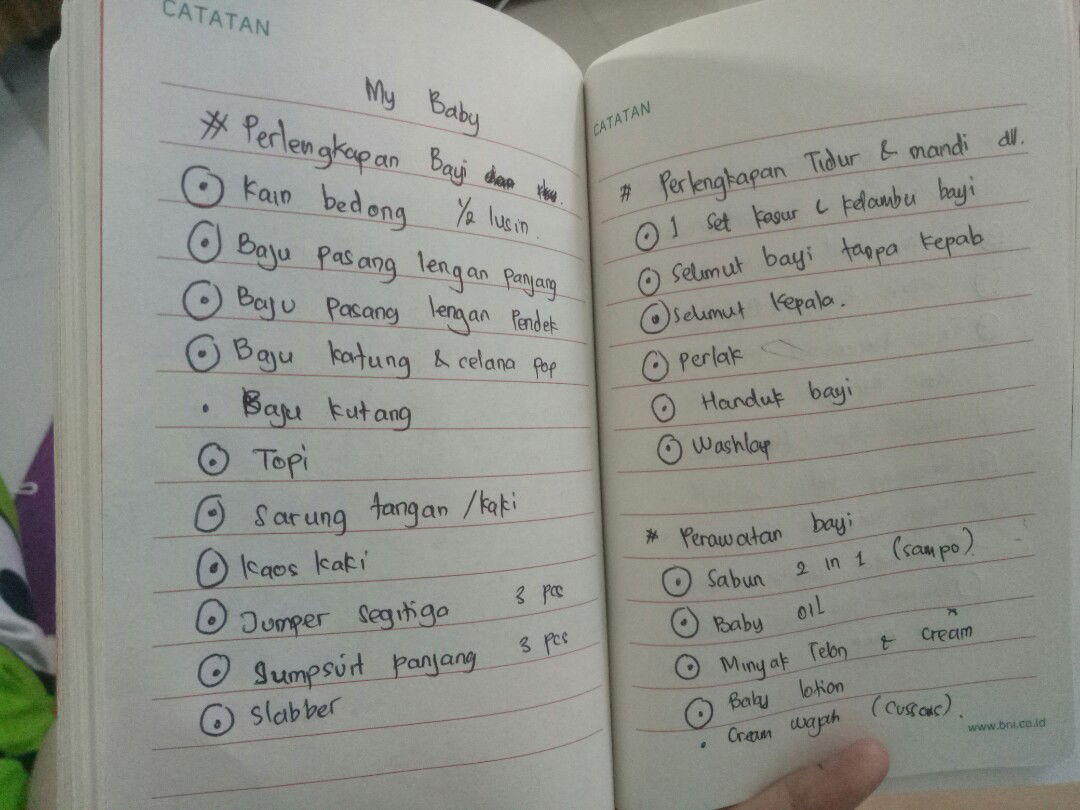 CATATAN
My Baby
# Perlengkapan Bayi
Kain bedong 1/2 lusin.
Baju pasang lengan panjang
Baju pasang lengan Pendek
Baju katung & celana pop
Baju kutang
Topi
Sarung tangan /kaki
Kaos kaki
Jumper segitiga 3 pcs
Jumpsuit panjang 3 pcs
Slabber
CATATAN
# Perlengkapan Tidur & mandi dll.
1 set kasur & kelambu bayi
Selimut bayi tanpa kepala
Selimut kepala.
Perlak
Handuk bayi
Washlap
* Perawatan bayi
Sabun 2 in 1 (sampo)
Baby oil
Minyak Telon & cream *
Baby lotion
Cream wajah (cussons).
www.bni.co.id